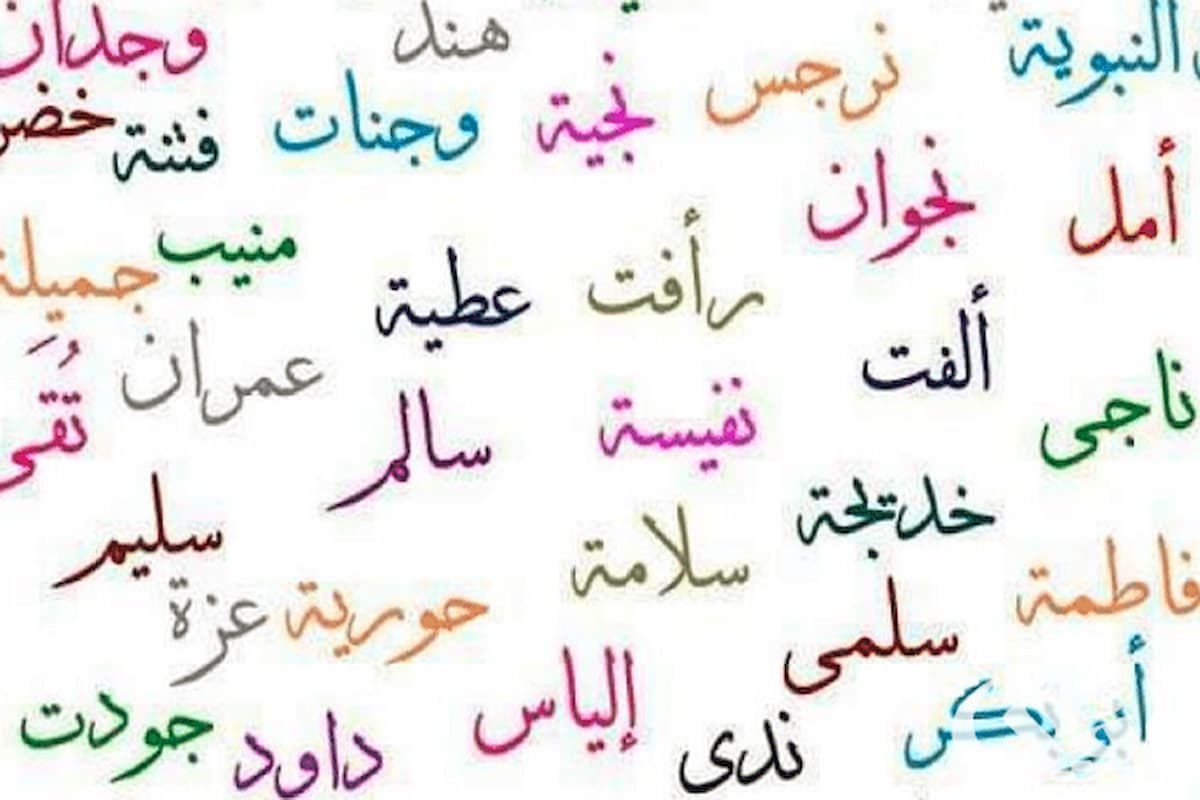 النبوية
هند
وجدان
نرجس
نجية
وجنات
فتنة
خضر
أمل
نجوان
منيب
رأفت
عطية
جميلة
ألفت
عمران
ناجى
نفيسة
سالم
تُقَى
خديجة
سليم
سلامة
فاطمة
حورية
عزة
سلمى
أبو بكر
إلياس
ندى
داود
جودت